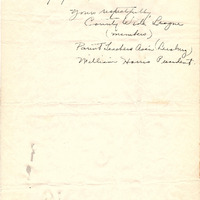 Yours respectfully,
County Wide League
(members)
Parent Teachers Assn
William Harris President